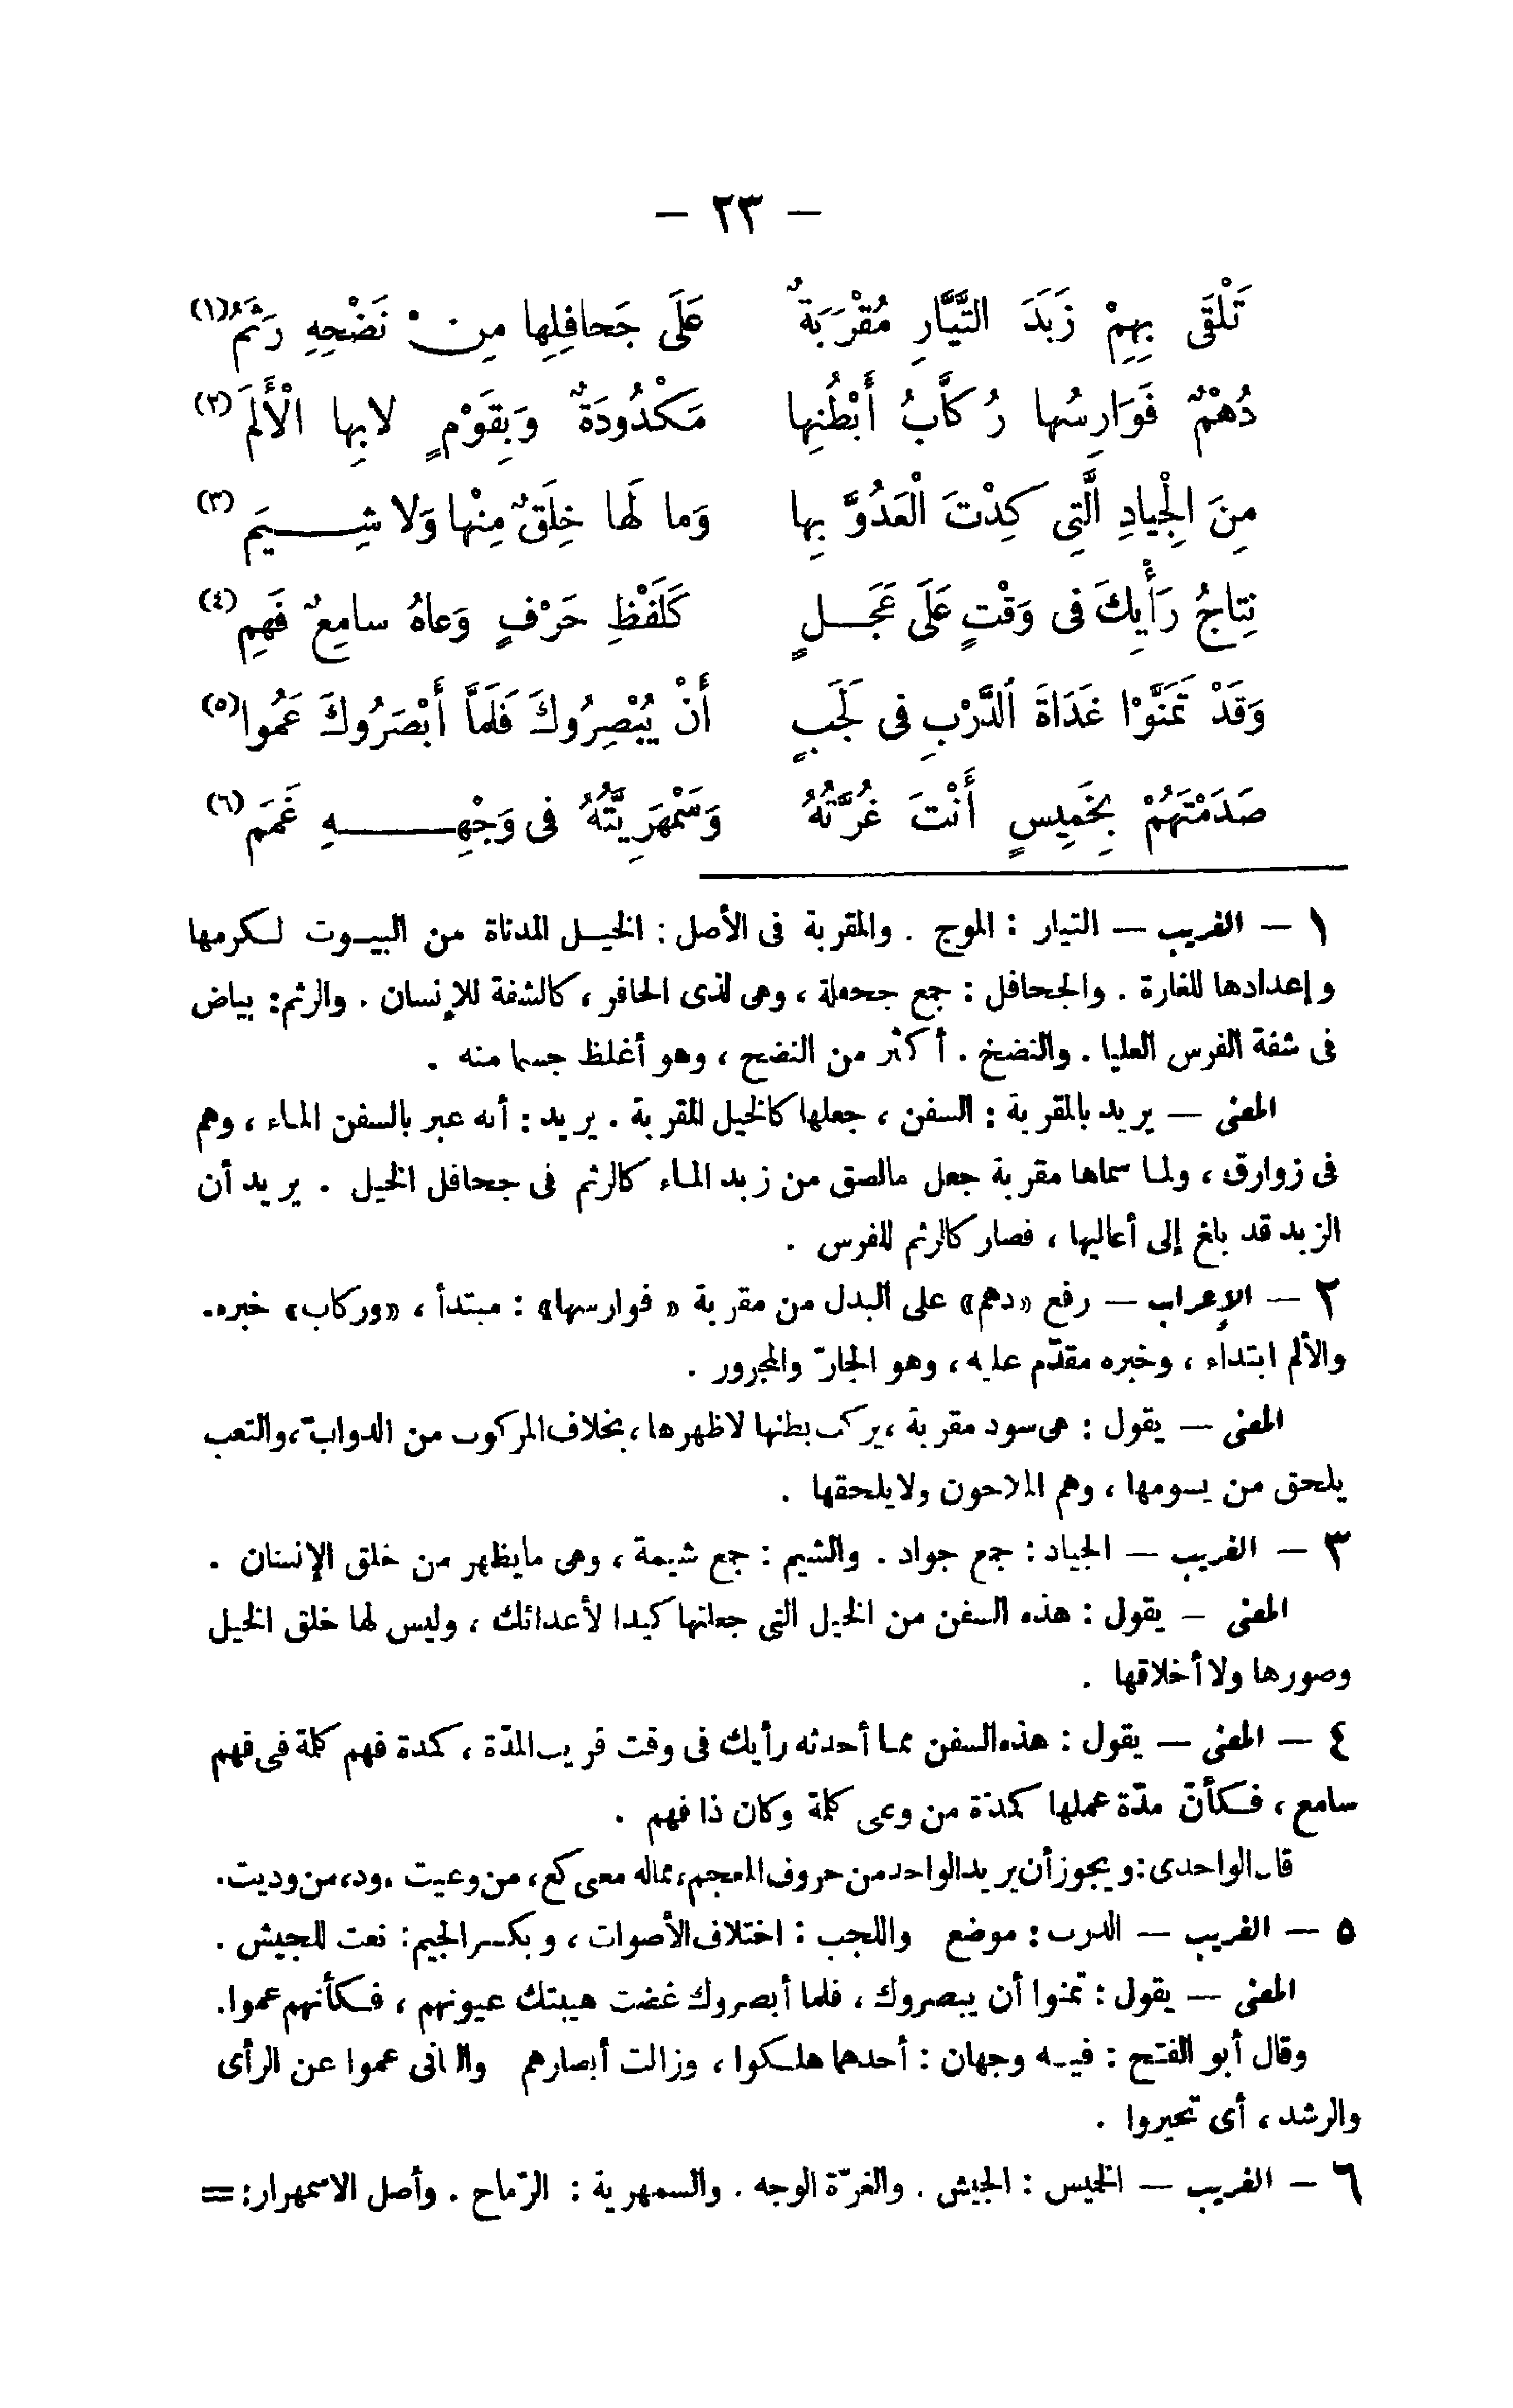 — ٢٣ —
تَلْقَى بِهِمْ زَبَدَ التَّيَّارِ مُقْرَبَةٌ عَلَى جَحافِلِها مِنْ نَضْحِهِ رَثَمُ (١)
دُهْمٌ فَوَارِسُها رُكَّابُ أَبْطُنِها مَكْدُودَةٌ وَبِقَوْمٍ لابِها الْأَلَمَ (٢)
مِنَ الْجِيادِ الَّتِى كِدْتَ الْعَدُوَّ بِها وَما لَها خِلَقٌ مِنْها وَلا شِيَمَ (٣)
نِتاجُ رَأْيِكَ فى وَقْتٍ عَلَى عَجَلٍ كَلَفْظِ حَرْفٍ وَعاهُ سامِعٌ فَهِمِ (٤)
وَقَدْ تَمَنَّوْا غَدَاةَ الدَّرْبِ فى لَجَبٍ أَنْ يُبْصِرُوكَ فَلَمَّا أَبْصَرُوكَ عَمُوا (٥)
صَدَمْتَهُمْ بِخَمِيسٍ أَنْتَ غُرَّتُهُ وَسَمْهَرِيَّتُهُ فى وَجْهِهِ غَمَمَ (٦)
١ — الغريب — التيار : الموج . والمقربة فى الأصل : الخيل المدناة من البيوت لكرمها
وإعدادها للغارة . والجحافل : جمع جحفلة ، وهى لذى الحافر ، كالشفة للإنسان . والرثم : بياض
فى شفة الفرس العليا . والنضخ . أكثر من النضح ، وهو أغلظ جسما منه .
المعنى — يريد بالمقربة : السفن ، جعلها كالخيل المقربة . يريد : أنه عبر بالسفن الماء ، وهم
فى زوارق ، ولما سماها مقربة جعل مالصق من زبد الماء كالرثم فى جحافل الخيل . يريد أن
الزبد قد بلغ إلى أعاليها ، فصار كالرثم للفرس .
٢ — الإعراب — رفع «دهم» على البدل من مقربة « فوارسها» : مبتدأ ، «وركاب» خبره.
والألم ابتداء ، وخبره مقدّم عليه ، وهو الجارّ والمجرور .
المعنى — يقول : هى سود مقربة ، يركب بطنها لا ظهرها ، بخلاف المركوب من الدوابّ ، والتعب
يلحق من يسومها ، وهم الملاحون ولا يلحقها .
٣ — الغريب — الجياد : جمع جواد . والشيم : جمع شيمة ، وهى مايظهر من خلق الإنسان .
المعنى — يقول : هذه السفن من الخيل التى جعلتها كيدا لأعدائك ، وليس لها خلق الخيل
وصورها ولا أخلاقها .
٤ — المعنى — يقول : هذه السفن مما أحدثه رأيك فى وقت قريب المدّة ، كمدة فهم كلمة فى فهم
سامع ، فكأنّ مدّة عملها كمدّة من وعى كلمة وكان ذا فهم .
قال الواحدى : ويجوز أن يريد الواحد من حروف المعجم ، مماله معى كع ، من وعيت .ود، من وديت.
٥ — الغريب — الدرب : موضع واللجب : اختلاف الأصوات ، وبكسر الجيم : نعت للجيش .
المعنى — يقول : تمنوا أن يبصروك ، فلما أبصروك غضت هيبتك عيونهم ، فكأنهم عموا.
وقال أبو الفتح : فيه وجهان : أحدهما هلكوا ، وزالت أبصارهم والثانى عموا عن الرأى
والرشد ، أى تحيروا .
٦ — الغريب — الخميس : الجيش . والغرّة الوجه . والسمهرية : الرّماح . وأصل الاسمهرار : =